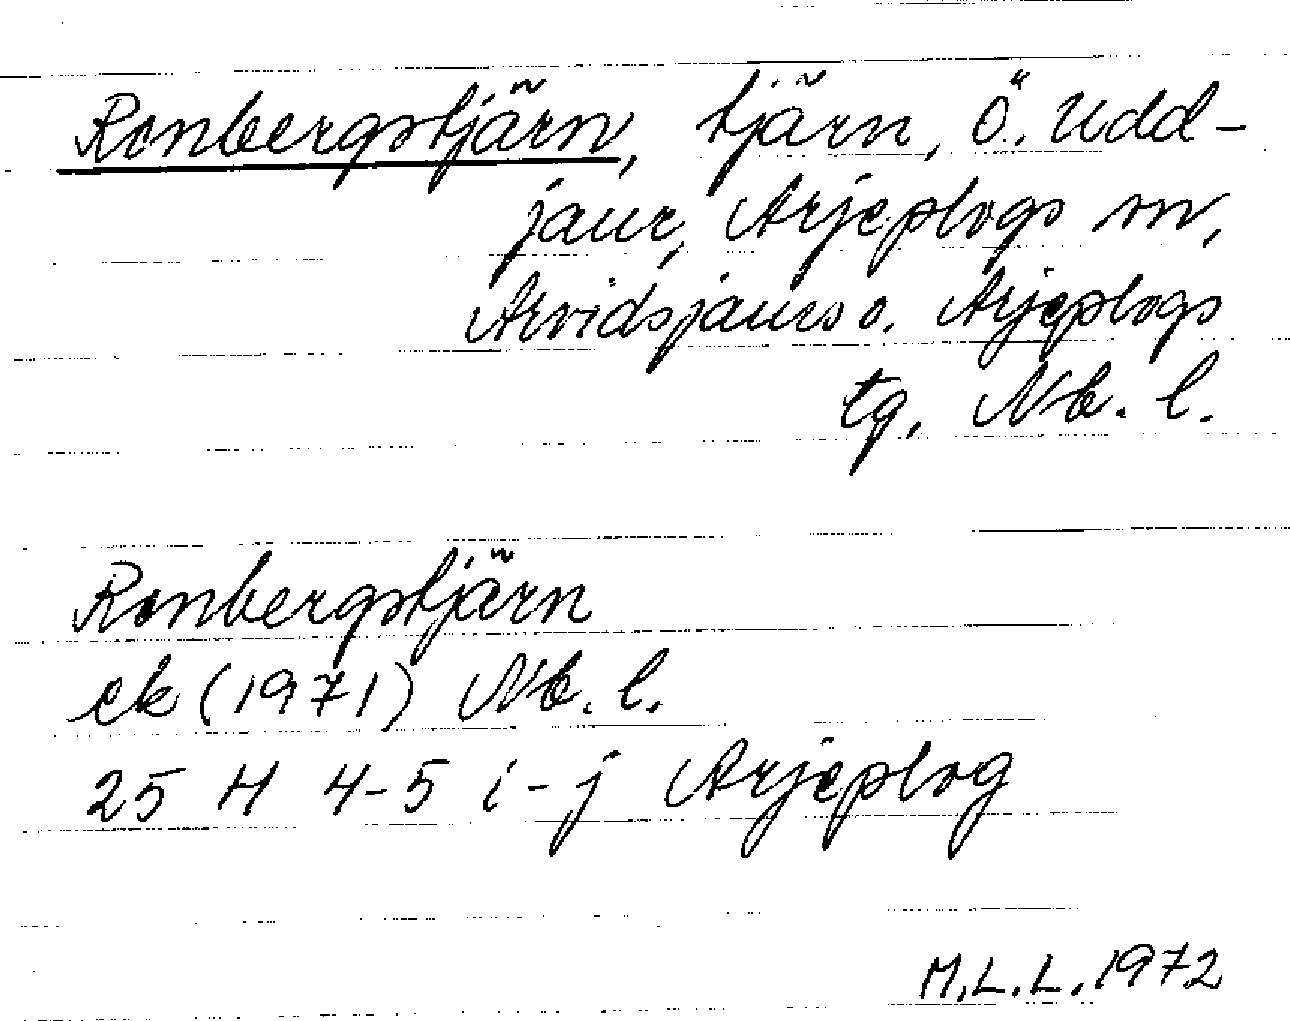 Ronbergstjärn, tjärn, Ö. Udd-
jaur, Arjeplogs sn,
Arvidsjaurs o. Arjeplogs
tg, Nb. l.
Ronbergstjärn
ek (1971) Nb. l.
25 H 4-5 i-j Arjeplog
M.L.L. 1972